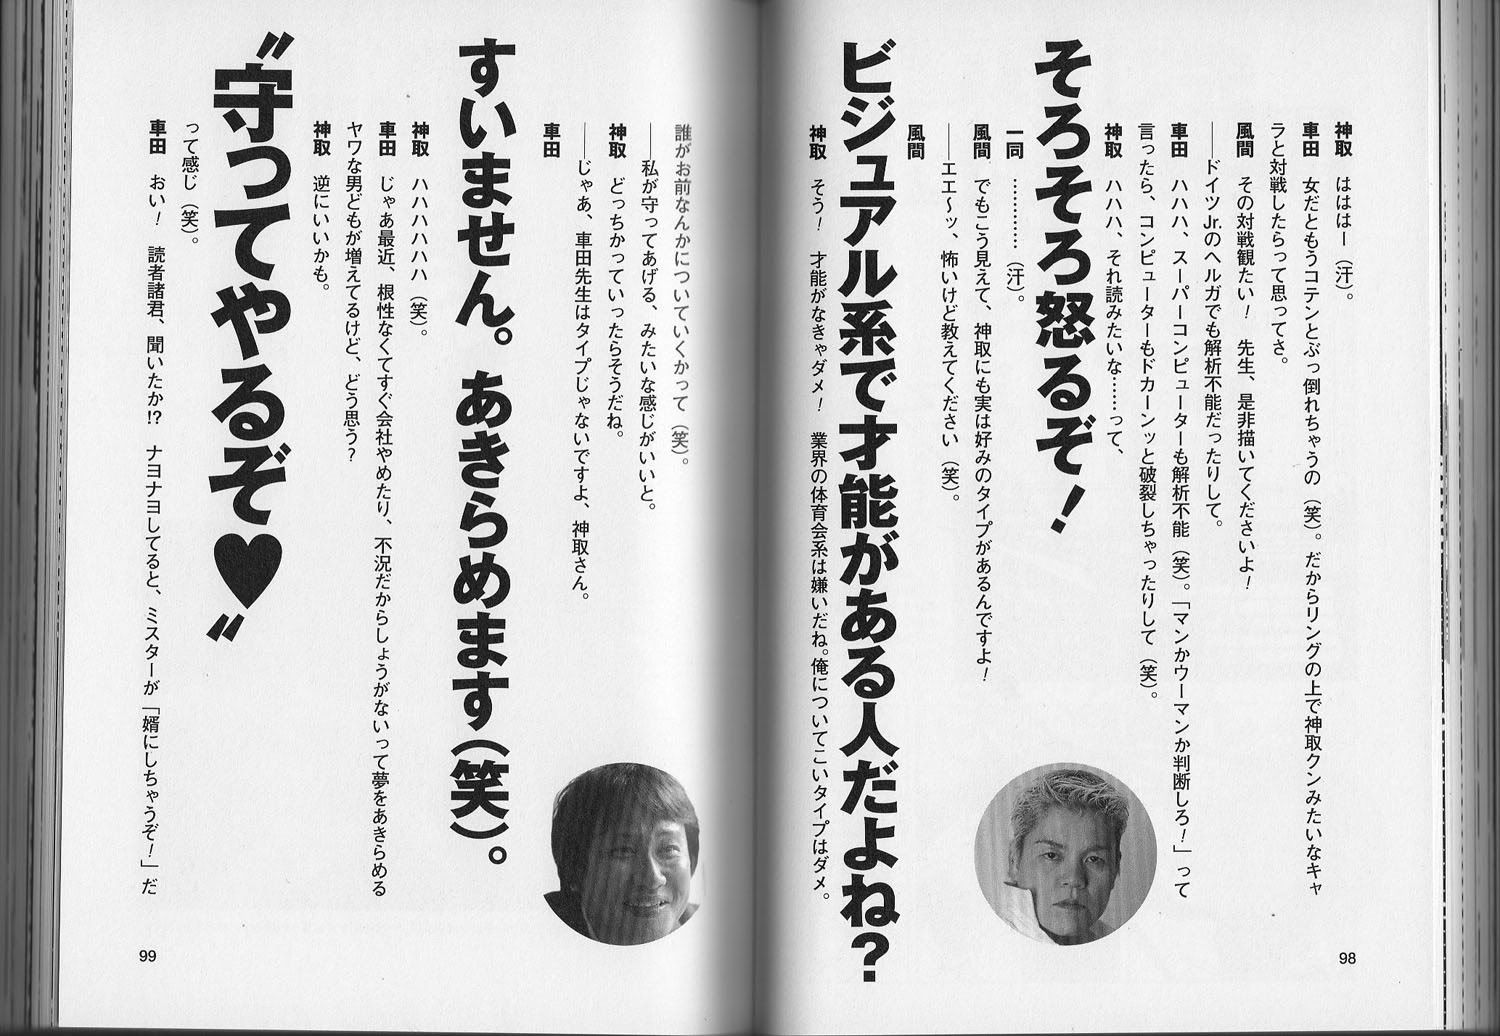 神取　はははー（汗）。
車田　女だともうコテンとぶっ倒れちゃうの（笑）。だからリングの上で神取クンみたいなキャ
ラと対戦したらって思ってさ。
風間　その対戦観たい！　先生、是非描いてくださいよ！
――ドイツJr.のヘルガでも解析不能だったりして。
車田　ハハハ、スーパーコンピューターも解析不能（笑）。「マンかウーマンか判断しろ！」って
言ったら、コンピューターもドカーンッと破裂しちゃったりして（笑）。
神取　ハハハ、それ読みたいな……って、
そろそろ怒るぞ！
一同　…………（汗）。
風間　でもこう見えて、神取にも実は好みのタイプがあるんですよ！
――エエ～ッ、怖いけど教えてください（笑）。
風間
ビジュアル系で才能がある人だよね？
神取　そう！　才能がなきゃダメ！　業界の体育会系は嫌いだね。俺についてこいタイプはダメ。
98
誰がお前なんかについていくかって（笑）。
――私が守ってあげる、みたいな感じがいいと。
神取　どっちかっていったらそうだね。
――じゃあ、車田先生はタイプじゃないですよ、神取さん。
車田
すいません。あきらめます（笑）。
神取　ハハハハハハ（笑）。
車田　じゃあ最近、根性なくてすぐ会社やめたり、不況だからしょうがないって夢をあきらめる
ヤワな男どもが増えてるけど、どう思う？
神取　逆にいいかも。
〝守ってやるぞ♥〟
って感じ（笑）。
車田　おい！　読者諸君、聞いたか!?　ナヨナヨしてると、ミスターが「婿にしちゃうぞ！」だ
99